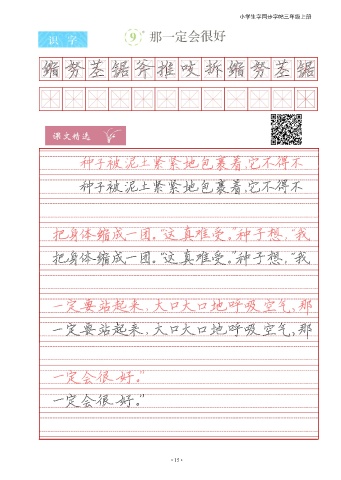 小学生字同步字帖三年级上册
识 字
9 那一定会很好
缩努茎锯斧推吱拆缩努茎锯
课文精选
种子被泥土紧紧地包裹着，它不得不
种子被泥土紧紧地包裹着，它不得不
把身体缩成一团。“这真难受。”种子想，“我
把身体缩成一团。“这真难受。”种子想，“我
一定要站起来，大口大口地呼吸空气，那
一定要站起来，大口大口地呼吸空气，那
一定会很好。”
一定会很好。”
·15·